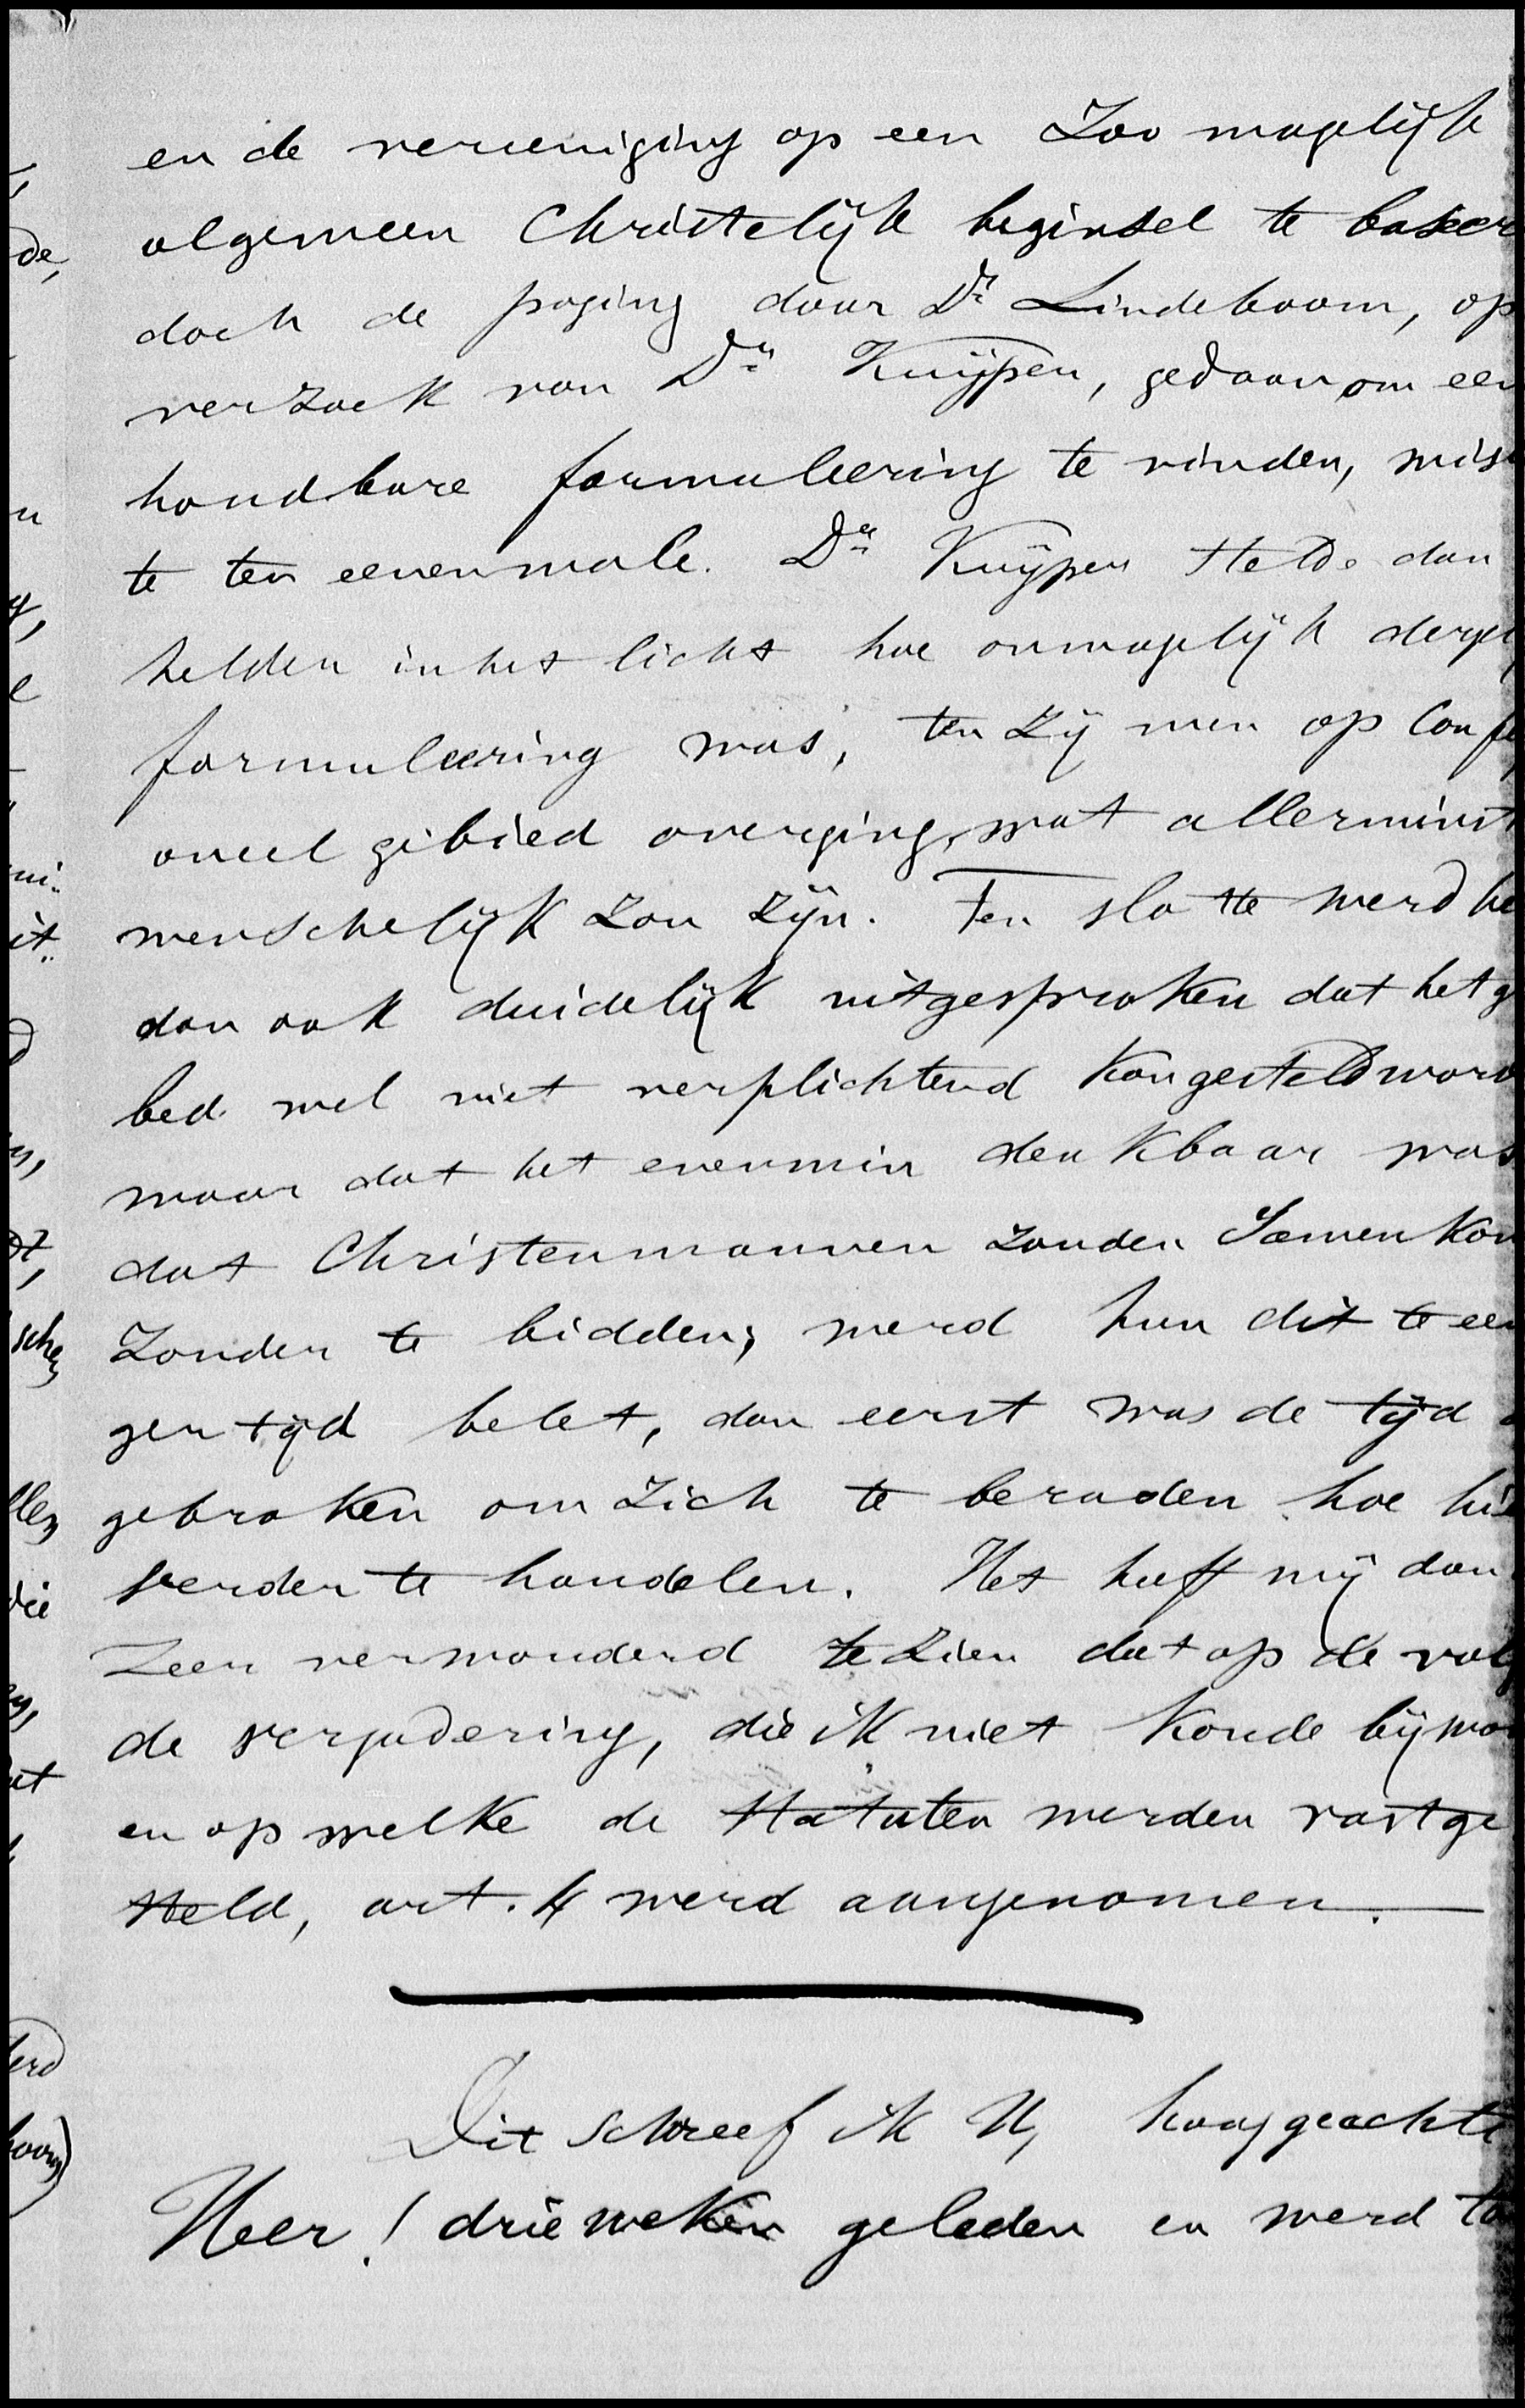 en de vereeniging op een zoo mogelijk
algemeen Christelijk beginsel te baseer
doch de poging door Dr Lindeboom, op
verzoek van Dr Kuijper, gedaan om een
houdbare formuleering te vinden, mis
te ten eenenmale. Dr Kuijper stelde dan
helder in het licht hoe onmogelijk dergel
formuleering was, ten zij men op Confe
oneel gebied overging, wat allerminst
wenschelijk zou zijn. Ten slotte werd he
dan ook duidelijk uitgesproken dat het g
bed wel niet verplichtend kon gesteld word
maar dat het evenmin denkbaar was
dat Christenmannen zouden Samenkom
Zonder te bidden; werd hun dit te een
ger tijd belet, dan eerst was de tijd a
gebroken om zich te beraden hoe hie
verder te handelen. Het heeft mij dan
Zeer verwonderd te zien dat op de volg
de vergadering, die ik niet konde bijwo
en op welke de Statuten werden vastge
steld, art. 4 werd aangenomen.
Dit schreef ik U, hooggeachte
Heer! drie weken geleden en werd to